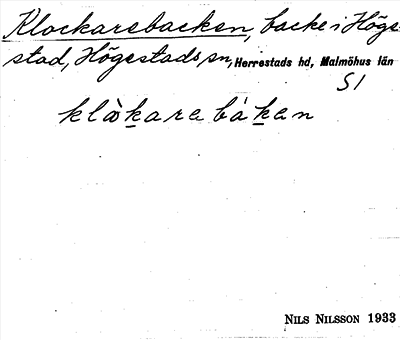 Klockarebacken, backe i Höge-
stad, Högestads sn, Herrestads hd, Malmöhus län
S1
klàkare bákan
Nils Nilsson 1933